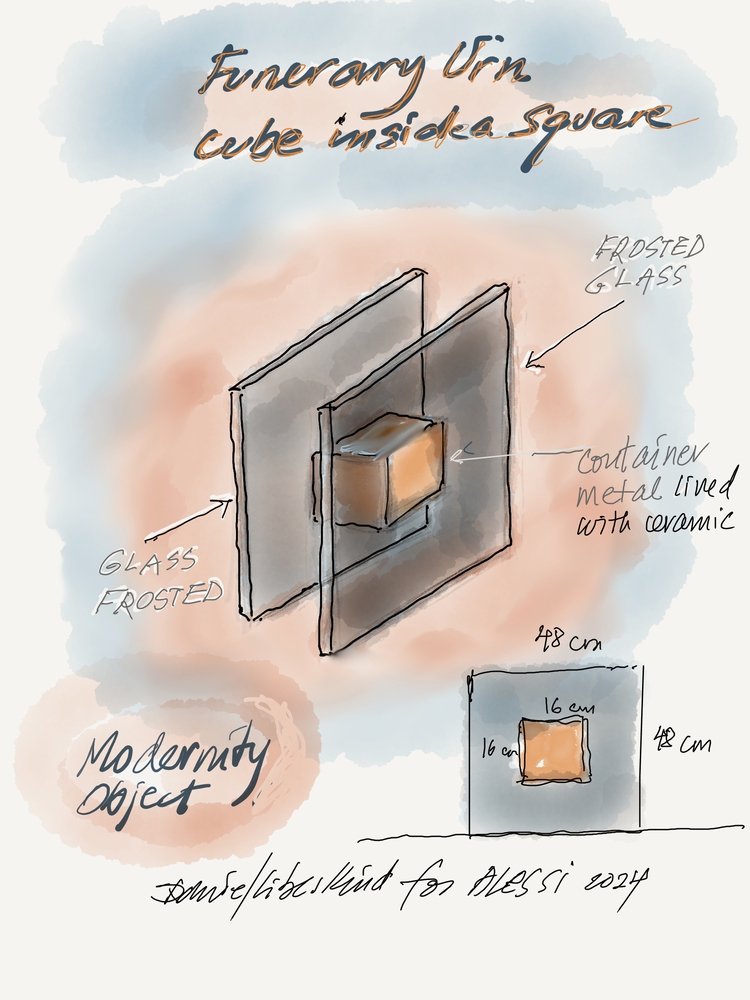 Funerary Urn
cube inside a square
FROSTED
GLASS
container
metal lined
with ceramic
GLASS
FROSTED
48 cm
16 cm
16 cm
48 cm
Modernity
Object
Daniel Libeskind for ALESSI 2024